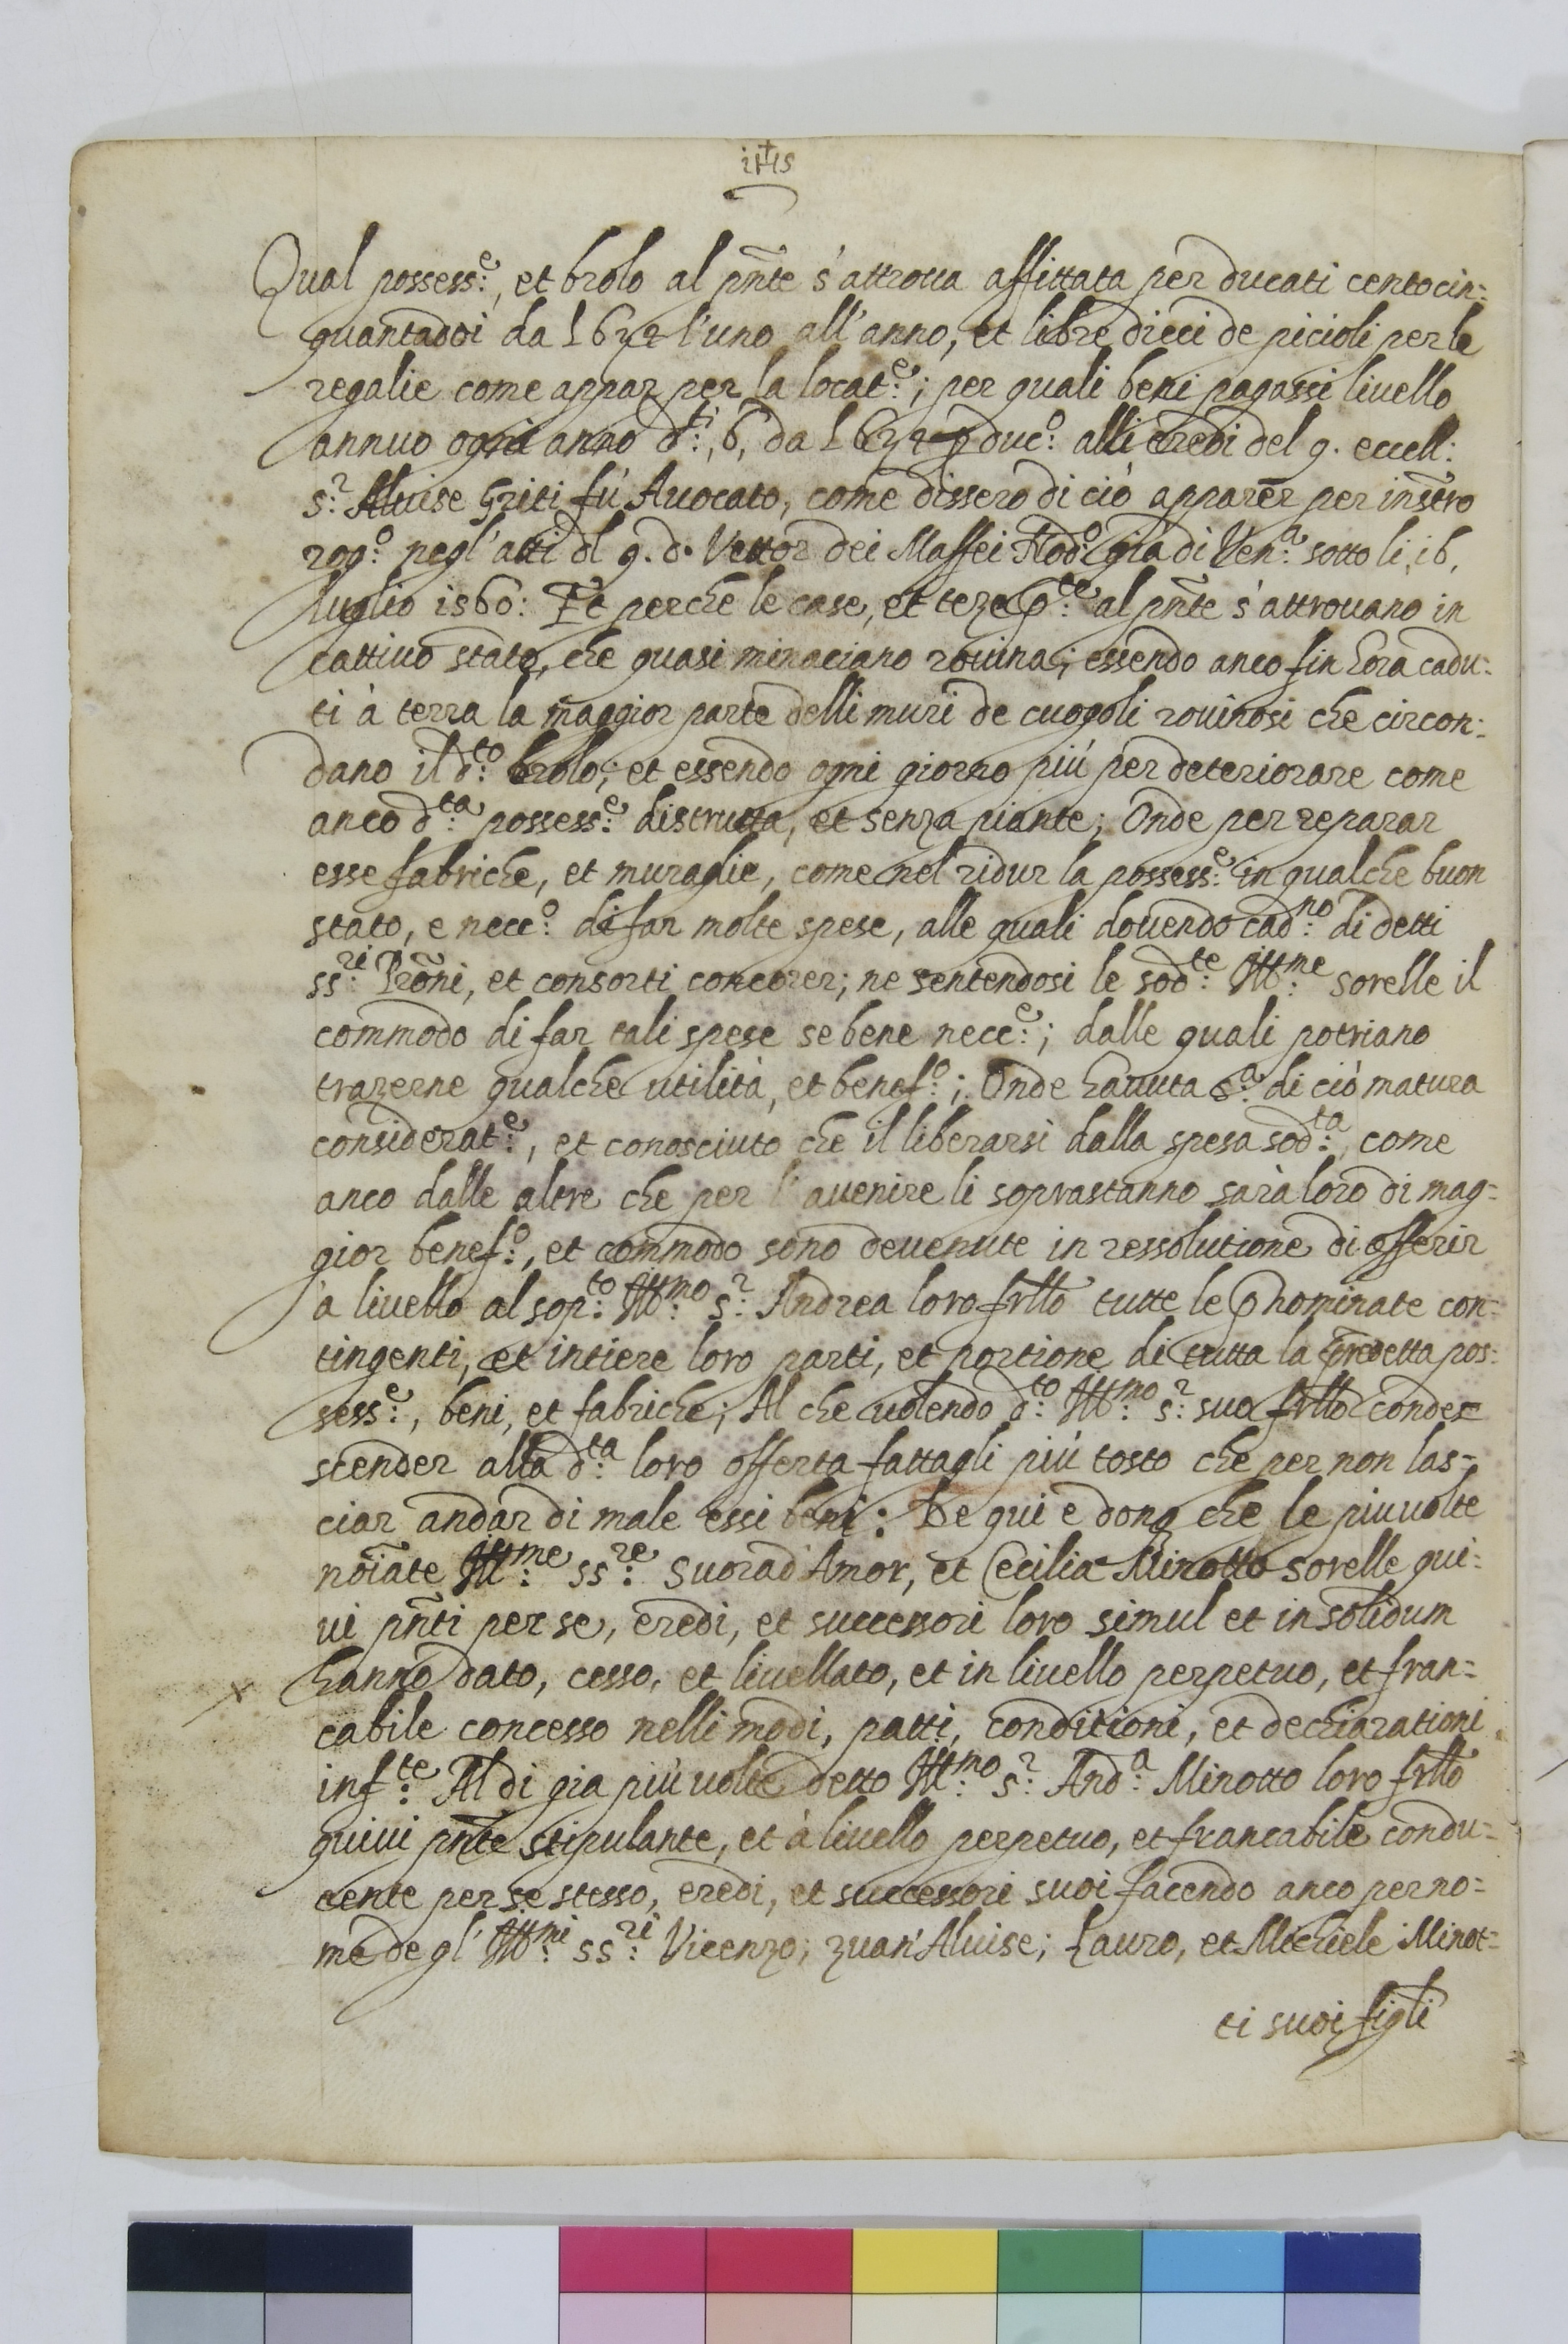 iHs
Qual possess:e, et brolo al pñte s'attroua affittata per ducati centocin=
quantadoi da L 6 s 4 l'uno all'anno, et libre dieci de picioli per le
regalie come appar per la locat:e; per quali beni pagassi liuello
annuo ogni anno d:ti, 6, da L 6 s 4 p duc:o alli eredi del q. eccell:
s:r Aluise Griti fù Auocato, come dissero di ciò apparer per instro
rog:o negl'atti dl q. d. Vettor dei Maffei Nod:o già di Ven:a sotto li, 16,
luglio 1560: Et perche le case, et teze al pñte s'attrouano in
cattiuo stato, che quasi minaciano rouina; essendo anco fin hora cadu=
ti à terra la maggior parte delli muri de cuogoli rouinosi che circon=
dano il d:to brolo; et essendo ogni giorno più per deteriorare come
anco d:ta possess:e distrutta, et senza piante; Onde per reparar
esse fabriche, et muraglie, come nel ridur la possess:e in qualche buon
stato, e nece:o di far molte spese, alle quali douendo cad:no di detti
ss:ri Prõni, et consorti concorer; ne sentendosi le sod:te Ill:me sorelle il
commodo di far tali spese se bene nece:e; dalle quali potriano
trazerne qualche utilità, et benef:o; Onde hauuta s:a di ciò matura
considerat:e, et conosciuto che il liberarsi dalla spesa sod:ta, come
anco dalle altre che per l'auenire li soprastanno sarà loro di mag=
gior benef:o, et commodo sono deuenute in ressolutione di offerir
à liuello al sop:to Ill:mo s:r Andrea loro frllo tutte le nominate con=
tingenti, et intiere loro parti, et portione di tutta la predetta pos=
sess:e, beni, et fabriche; Al che uolendo d:to Ill:mo s:r suo frllo condes=
scender alla d:ta loro offerta fattagli più tosto che per non las=
ciar andar di male essi beni: De qui e donq che le piu uolte
noĩate Ill:me ss:re Suorad'Amor, et Cecilia Minotto sorelle qui=
ui pñti per se, eredi, et successori loro simul et in solidum
hanno dato, cesso, et liuellato, et in liuello perpetuo, et fran=
cabile concesso nelli modi, patti, conditioni, et dechiarationi
inf:te Al di gia più uolte detto Ill:mo s:r And:a Minotto loro frllo
quiui pñte stipulante, et à liuello perpetuo, et francabile condu=
cente per se stesso, eredi, et successori suoi facendo anco per no=
me de gl' Ill:mi ss:ri Vicenzo; Zuan'Aluise; Lauro, et Michiele Minot=
ti suoi figli